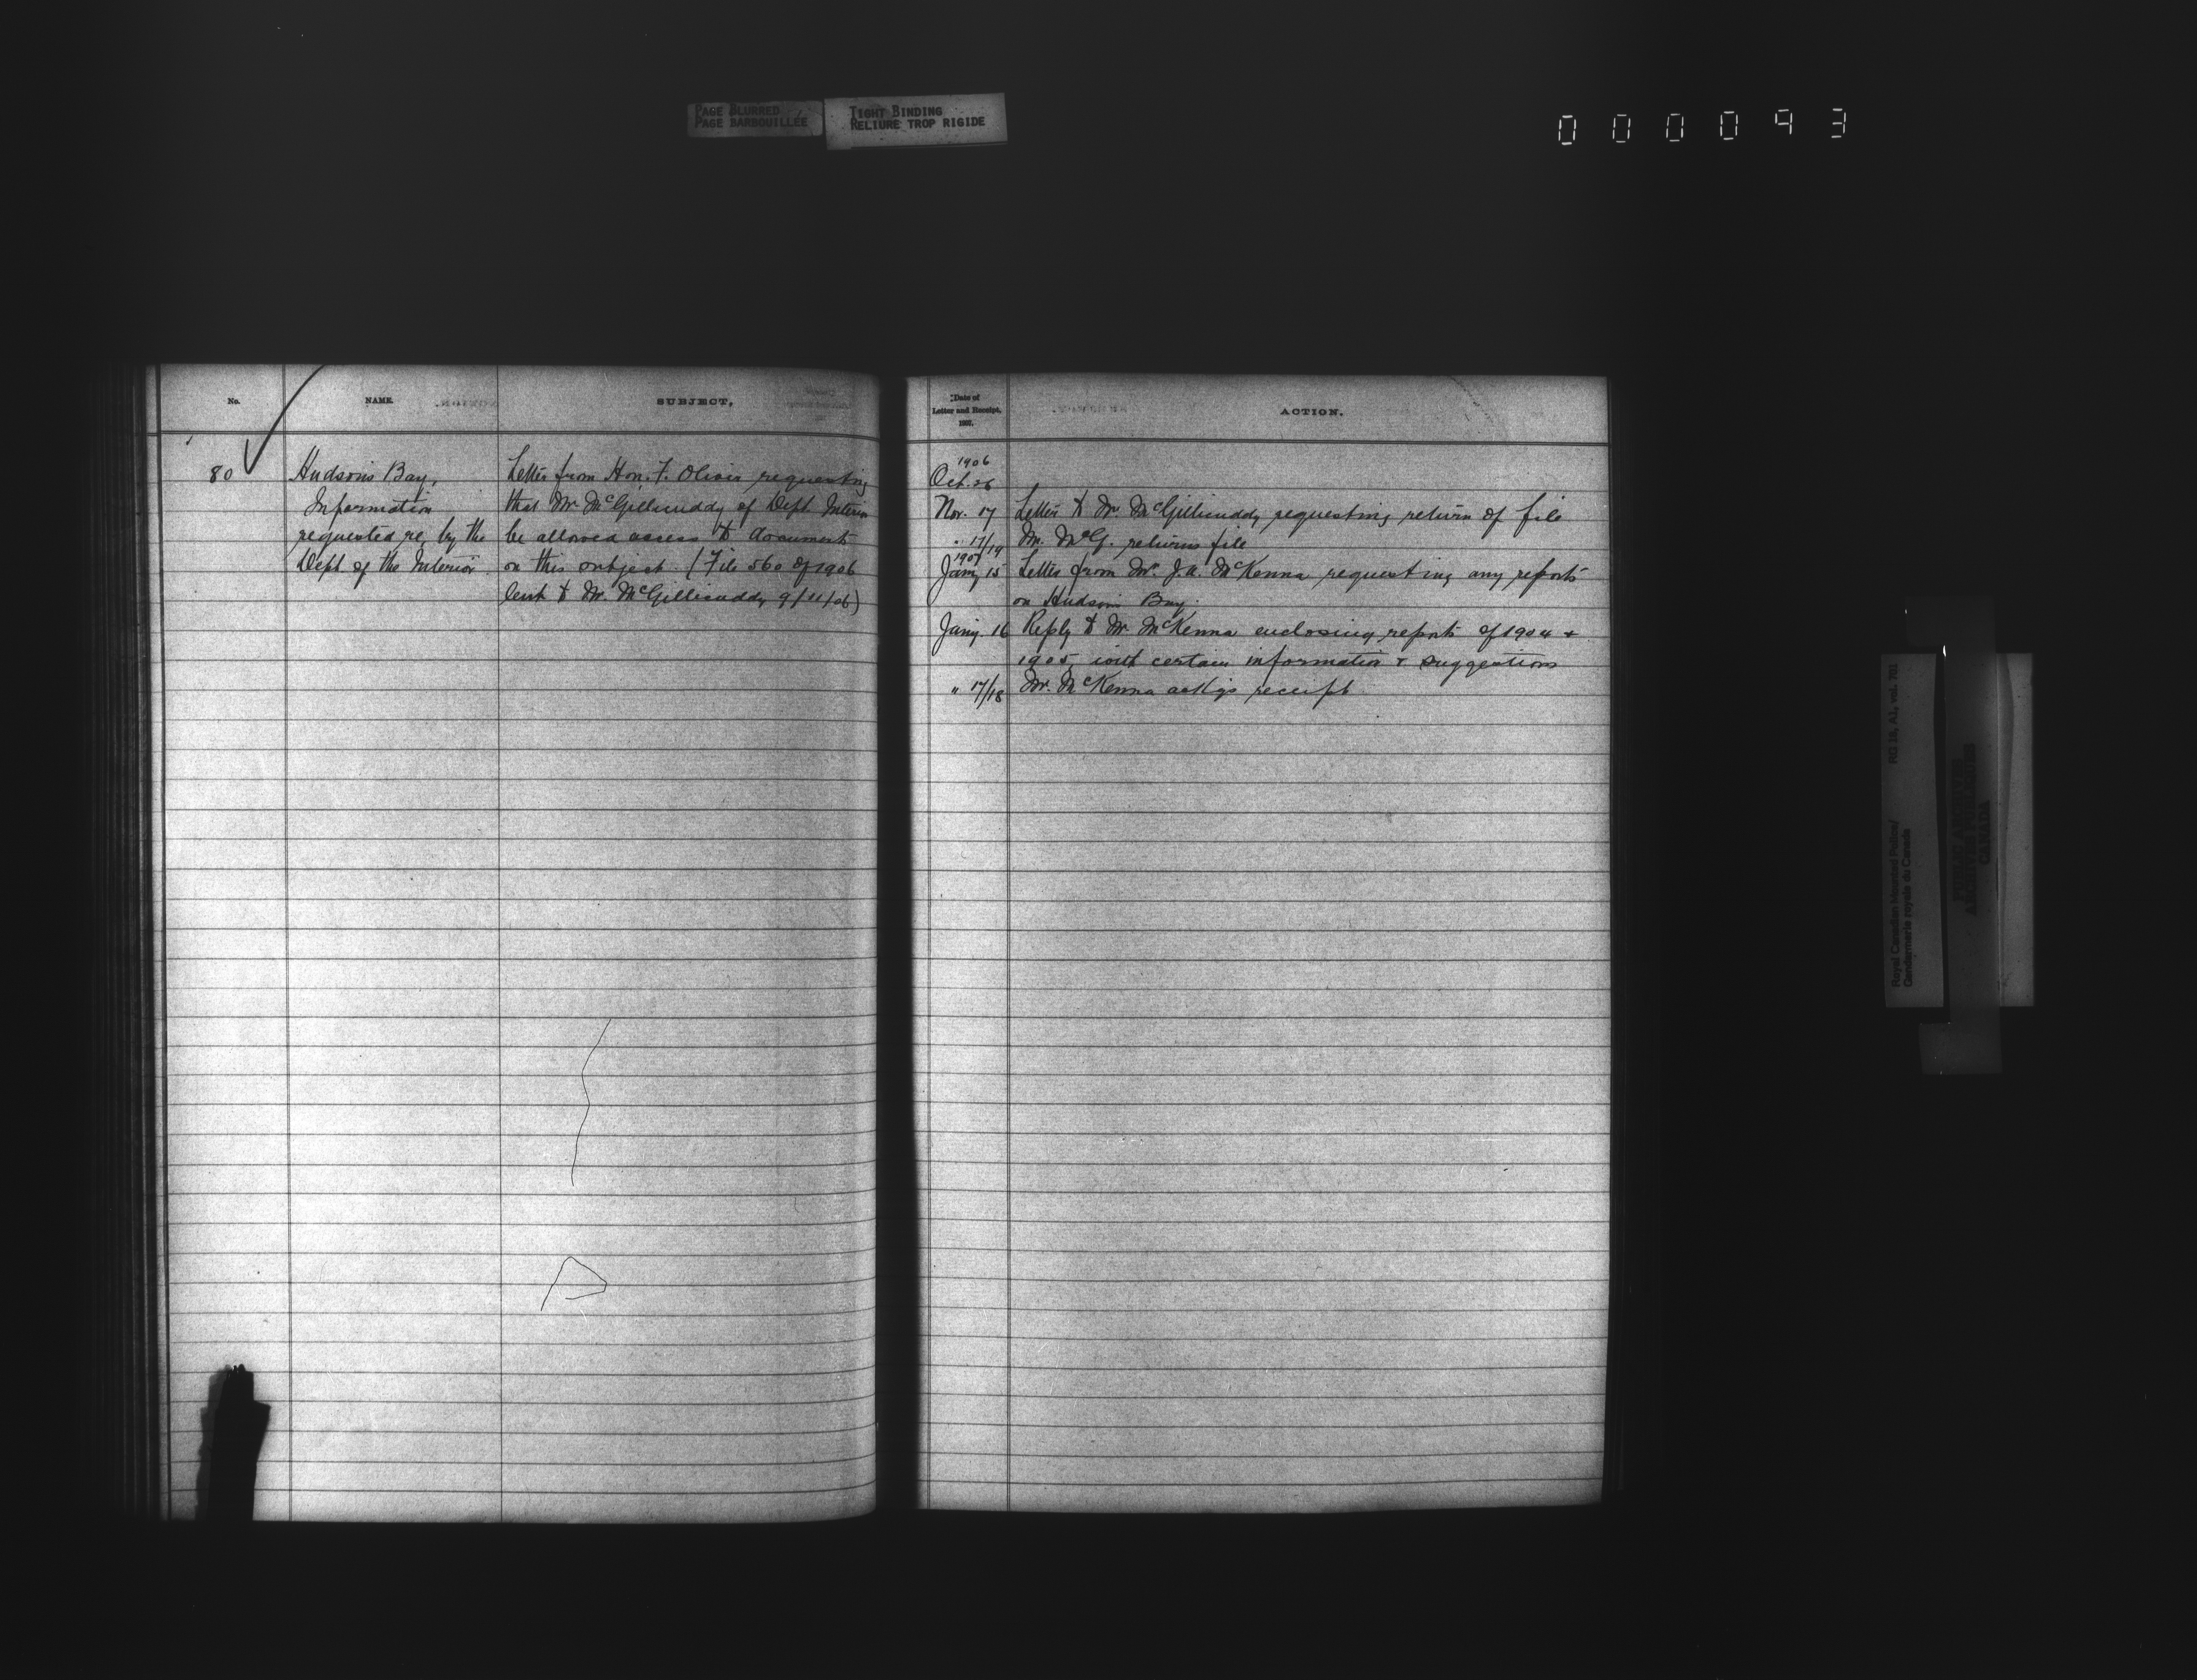 PAGE BLURRED
PAGE BARBOUILLÉE
TIGHT BINDING
RELIURE TROP RIGIDE
000093
No.
NAME.
SUBJECT.
80
Hudson's Bay,
Information
requested re, by the
Dept. of the Interior.
Letter from Hon. F. Oliver requesting
that Mr. McGillicuddy of Dept. Interior
be allowed access to documents
on this subject. (File 560 of 1906
lent to Mr. McGillicuddy 9/11/06)
Date of
Letter and Receipt.
1907.
ACTION.
1906
Oct. 26
Nov. 17 Letter to Mr. McGillicuddy requesting return of file
" 17/19 Mr. McG. returns file
1907
Jany 15 Letter from Mr. J.A. McKenna requesting any reports
on Hudson's Bay.
Jany. 16 Reply to Mr. McKenna enclosing reports of 1904 +
1905, with certain information + suggestions
" 17/18 Mr. McKenna ackgs receipt.
Royal Canadian Mounted Police/
Gendarmerie royale du Canada
RG 18, A1, vol. 701
PUBLIC ARCHIVES
ARCHIVES PUBLIQUES
CANADA